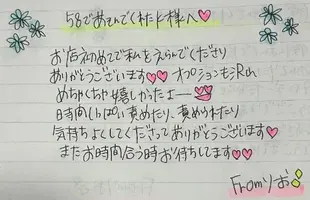 58であそんでくれたK様へ♡
お店初めてで私をえらんでくださり
ありがとうございます♡♡ オプションも
めちゃくちゃ嬉しかったよー
時間いっぱい責めたり、責められたり
気持ちよくしてくださってありがとうございます♡
またお時間合う時お待ちしてます♡♡
Fromりお